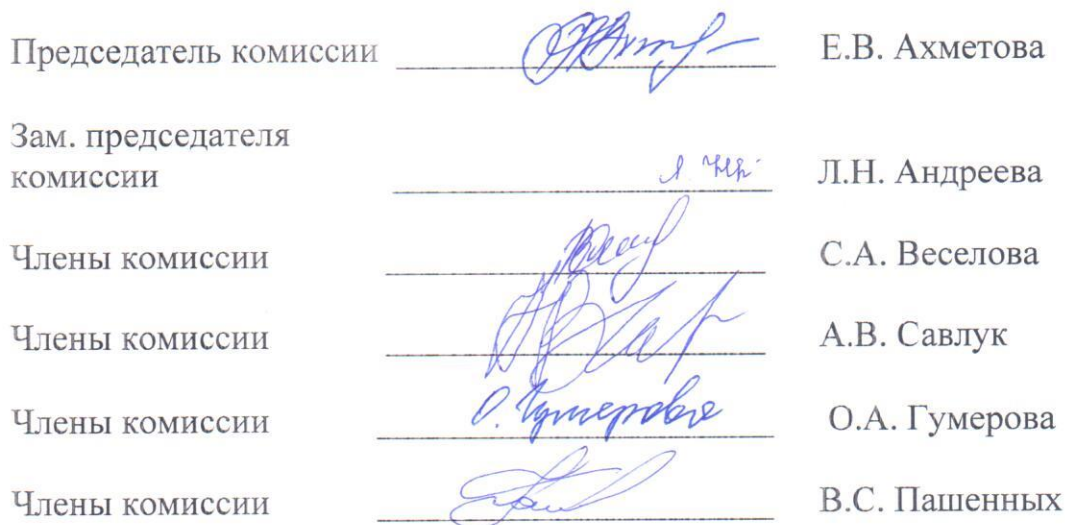 Председатель комиссии Е.В. Ахметова
Зам. председателя
комиссии Л.Н. Андреева
Члены комиссии С.А. Веселова
Члены комиссии А.В. Савлук
Члены комиссии О. Гумерова О.А. Гумерова
Члены комиссии В.С. Пашенных